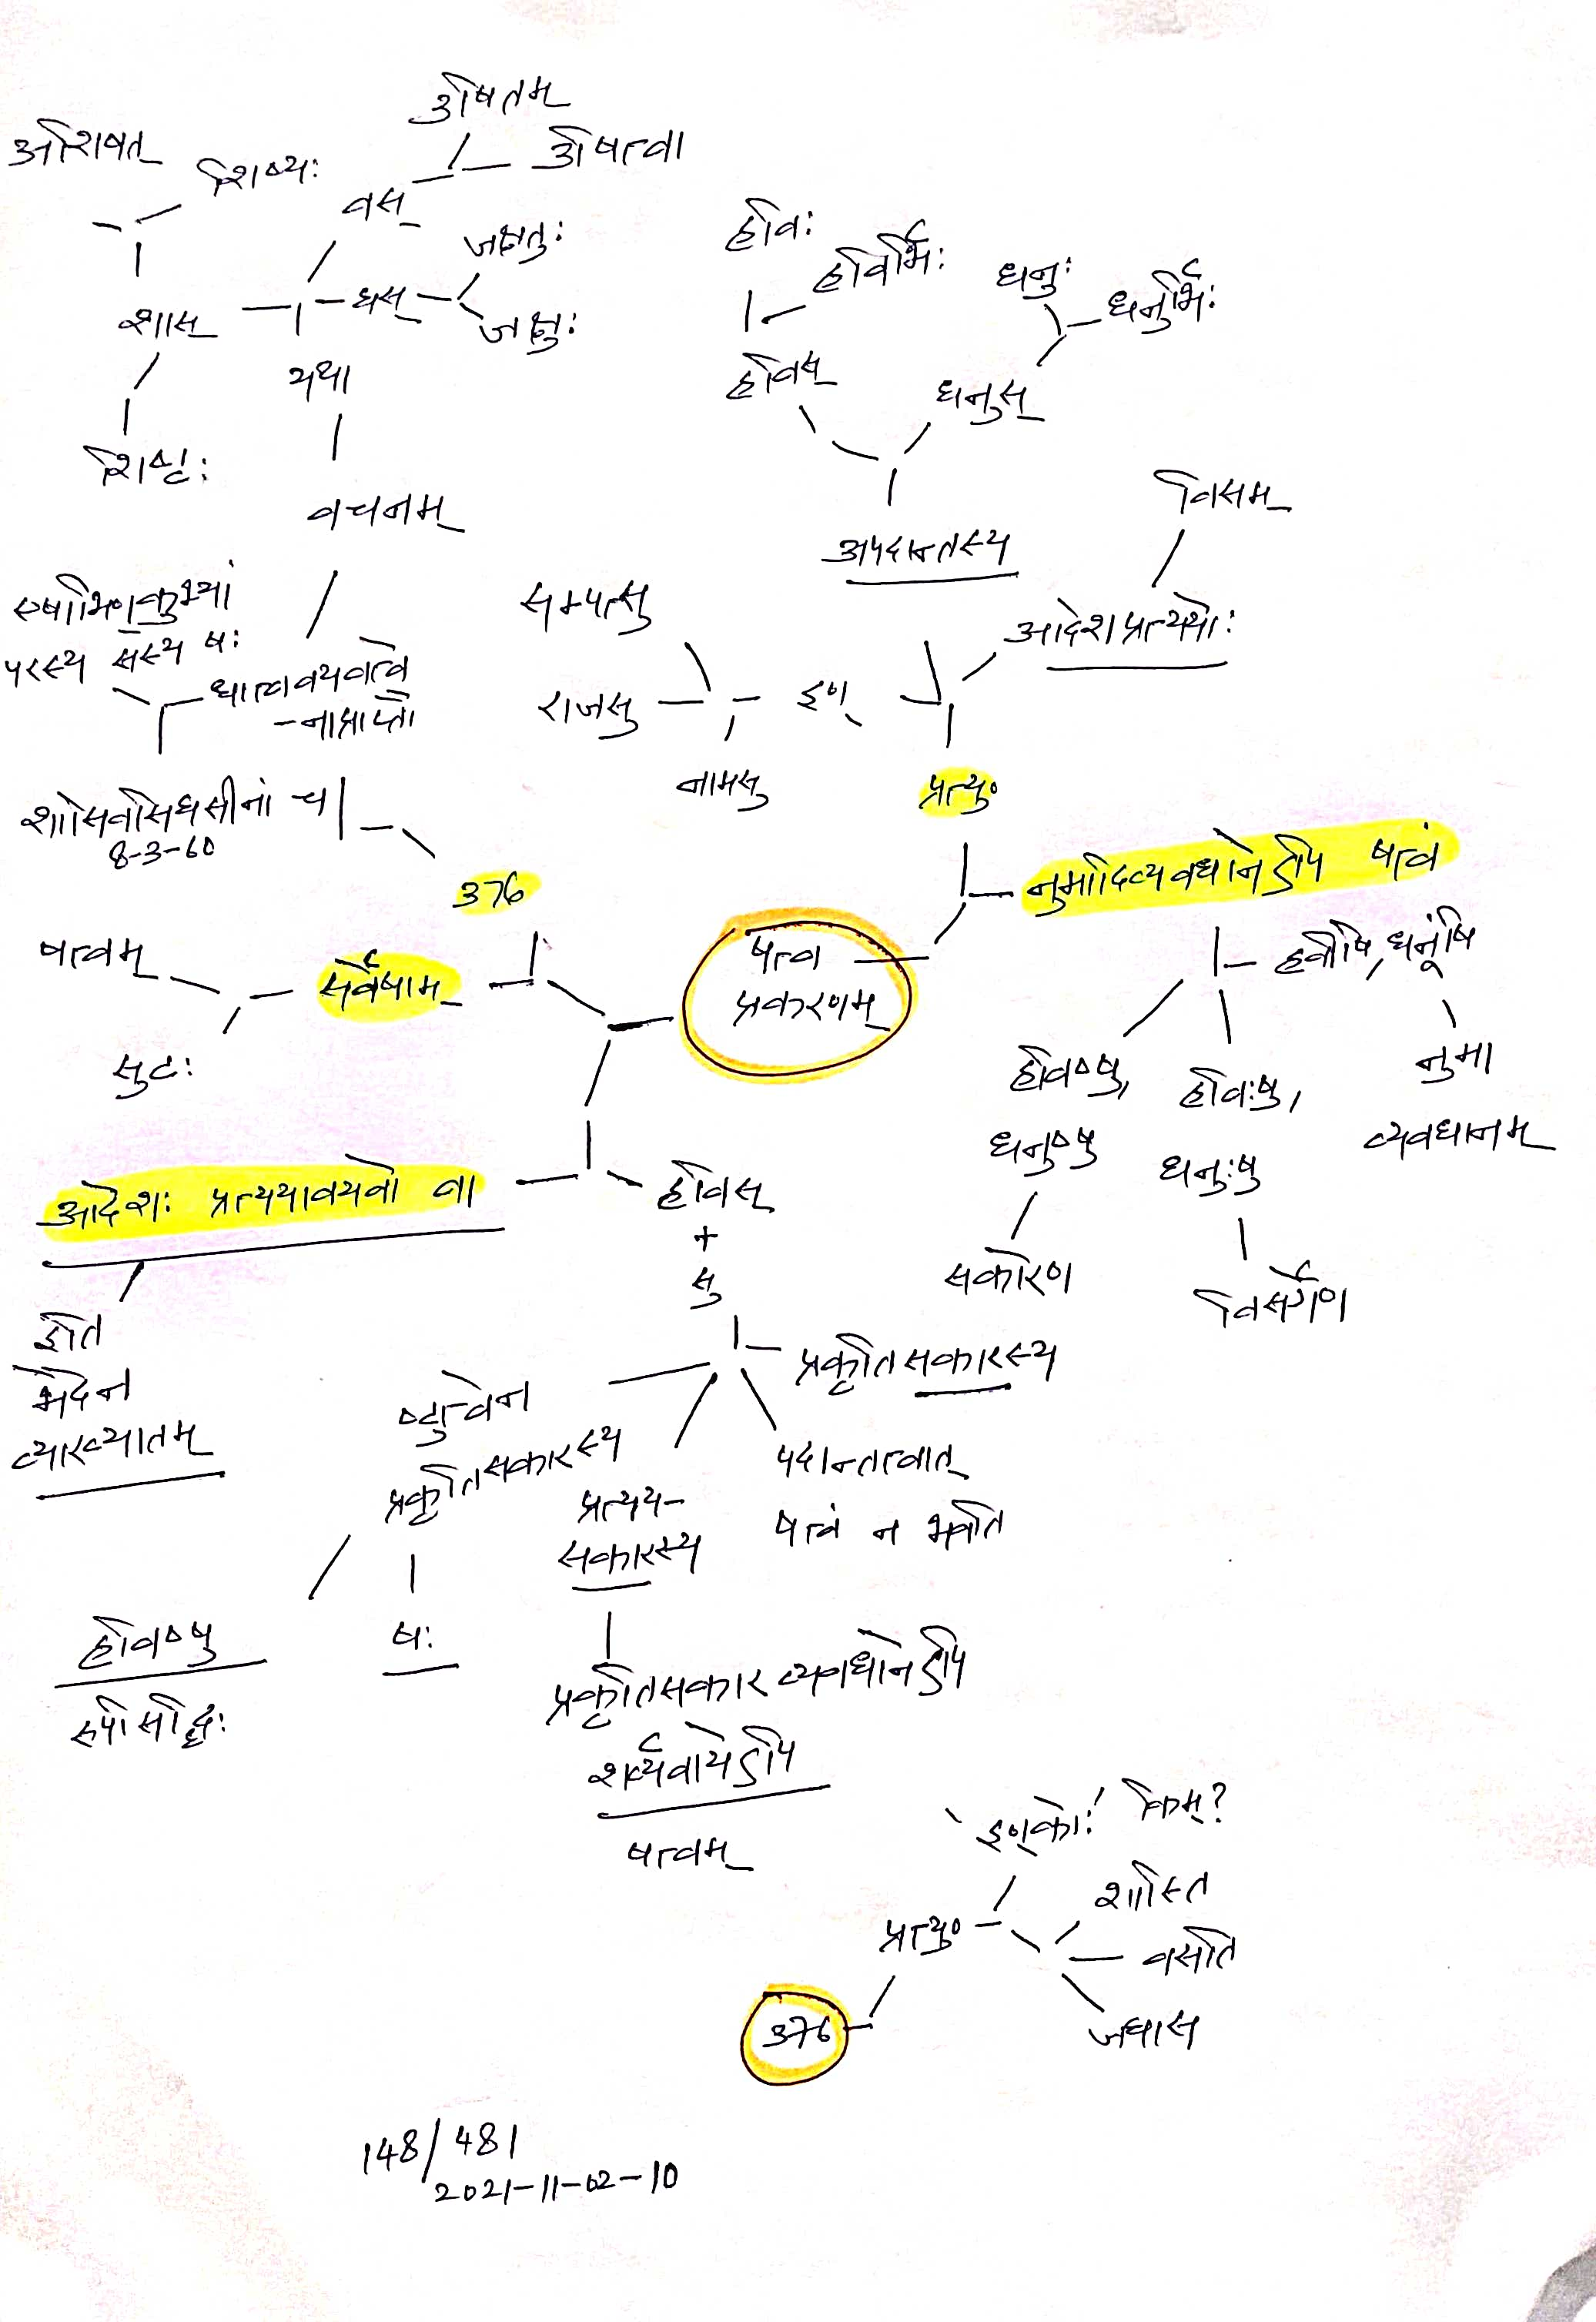 उषितम्
अशिषत्
शिष्यः
उषित्वा
वस्
जक्षतुः
शास्
घस्
जक्षुः
यथा
शिष्टः
वचनम्
हविः
हविर्भिः
धनुः
धनुर्भिः
हविस्
धनुस्
अपदान्तस्य
बिसम्
आदेशप्रत्यययोः
सम्पत्सु
राजसु
इण्
नामसु
प्रत्यु॰
परस्य सस्य षः
धात्ववयवत्वे
-नाप्राप्तौ
शासिवसिघसीनां च
8-3-60
376
नुमादिव्यवधानेऽपि षत्वं
हवींषि, धनूंषि
षत्वम्
सर्वेषाम्
षत्व
प्रकरणम्
सुटः
हविष्षु,
धनुष्षु
हविःषु,
धनुःषु
नुमा
व्यवधानम्
सकारेण
विसर्गेण
आदेशः प्रत्ययावयवो वा
हविस्
+
सु
इति
भेदेन
व्याख्यातम्
प्रकृतिसकारस्य
ष्टुत्वेन
प्रकृतिसकारस्य
प्रत्यय-
सकारस्य
पदान्तत्वात्
षत्वं न भवति
हविष्षु
रूपसिद्धिः
षः
प्रकृतिसकारव्यवधानेऽपि
शर्व्यवायेऽपि
षत्वम्
'इण्कोः' किम्?
प्रत्यु॰
शास्ति
वसति
जघास
376
148/481
2021-11-02-10